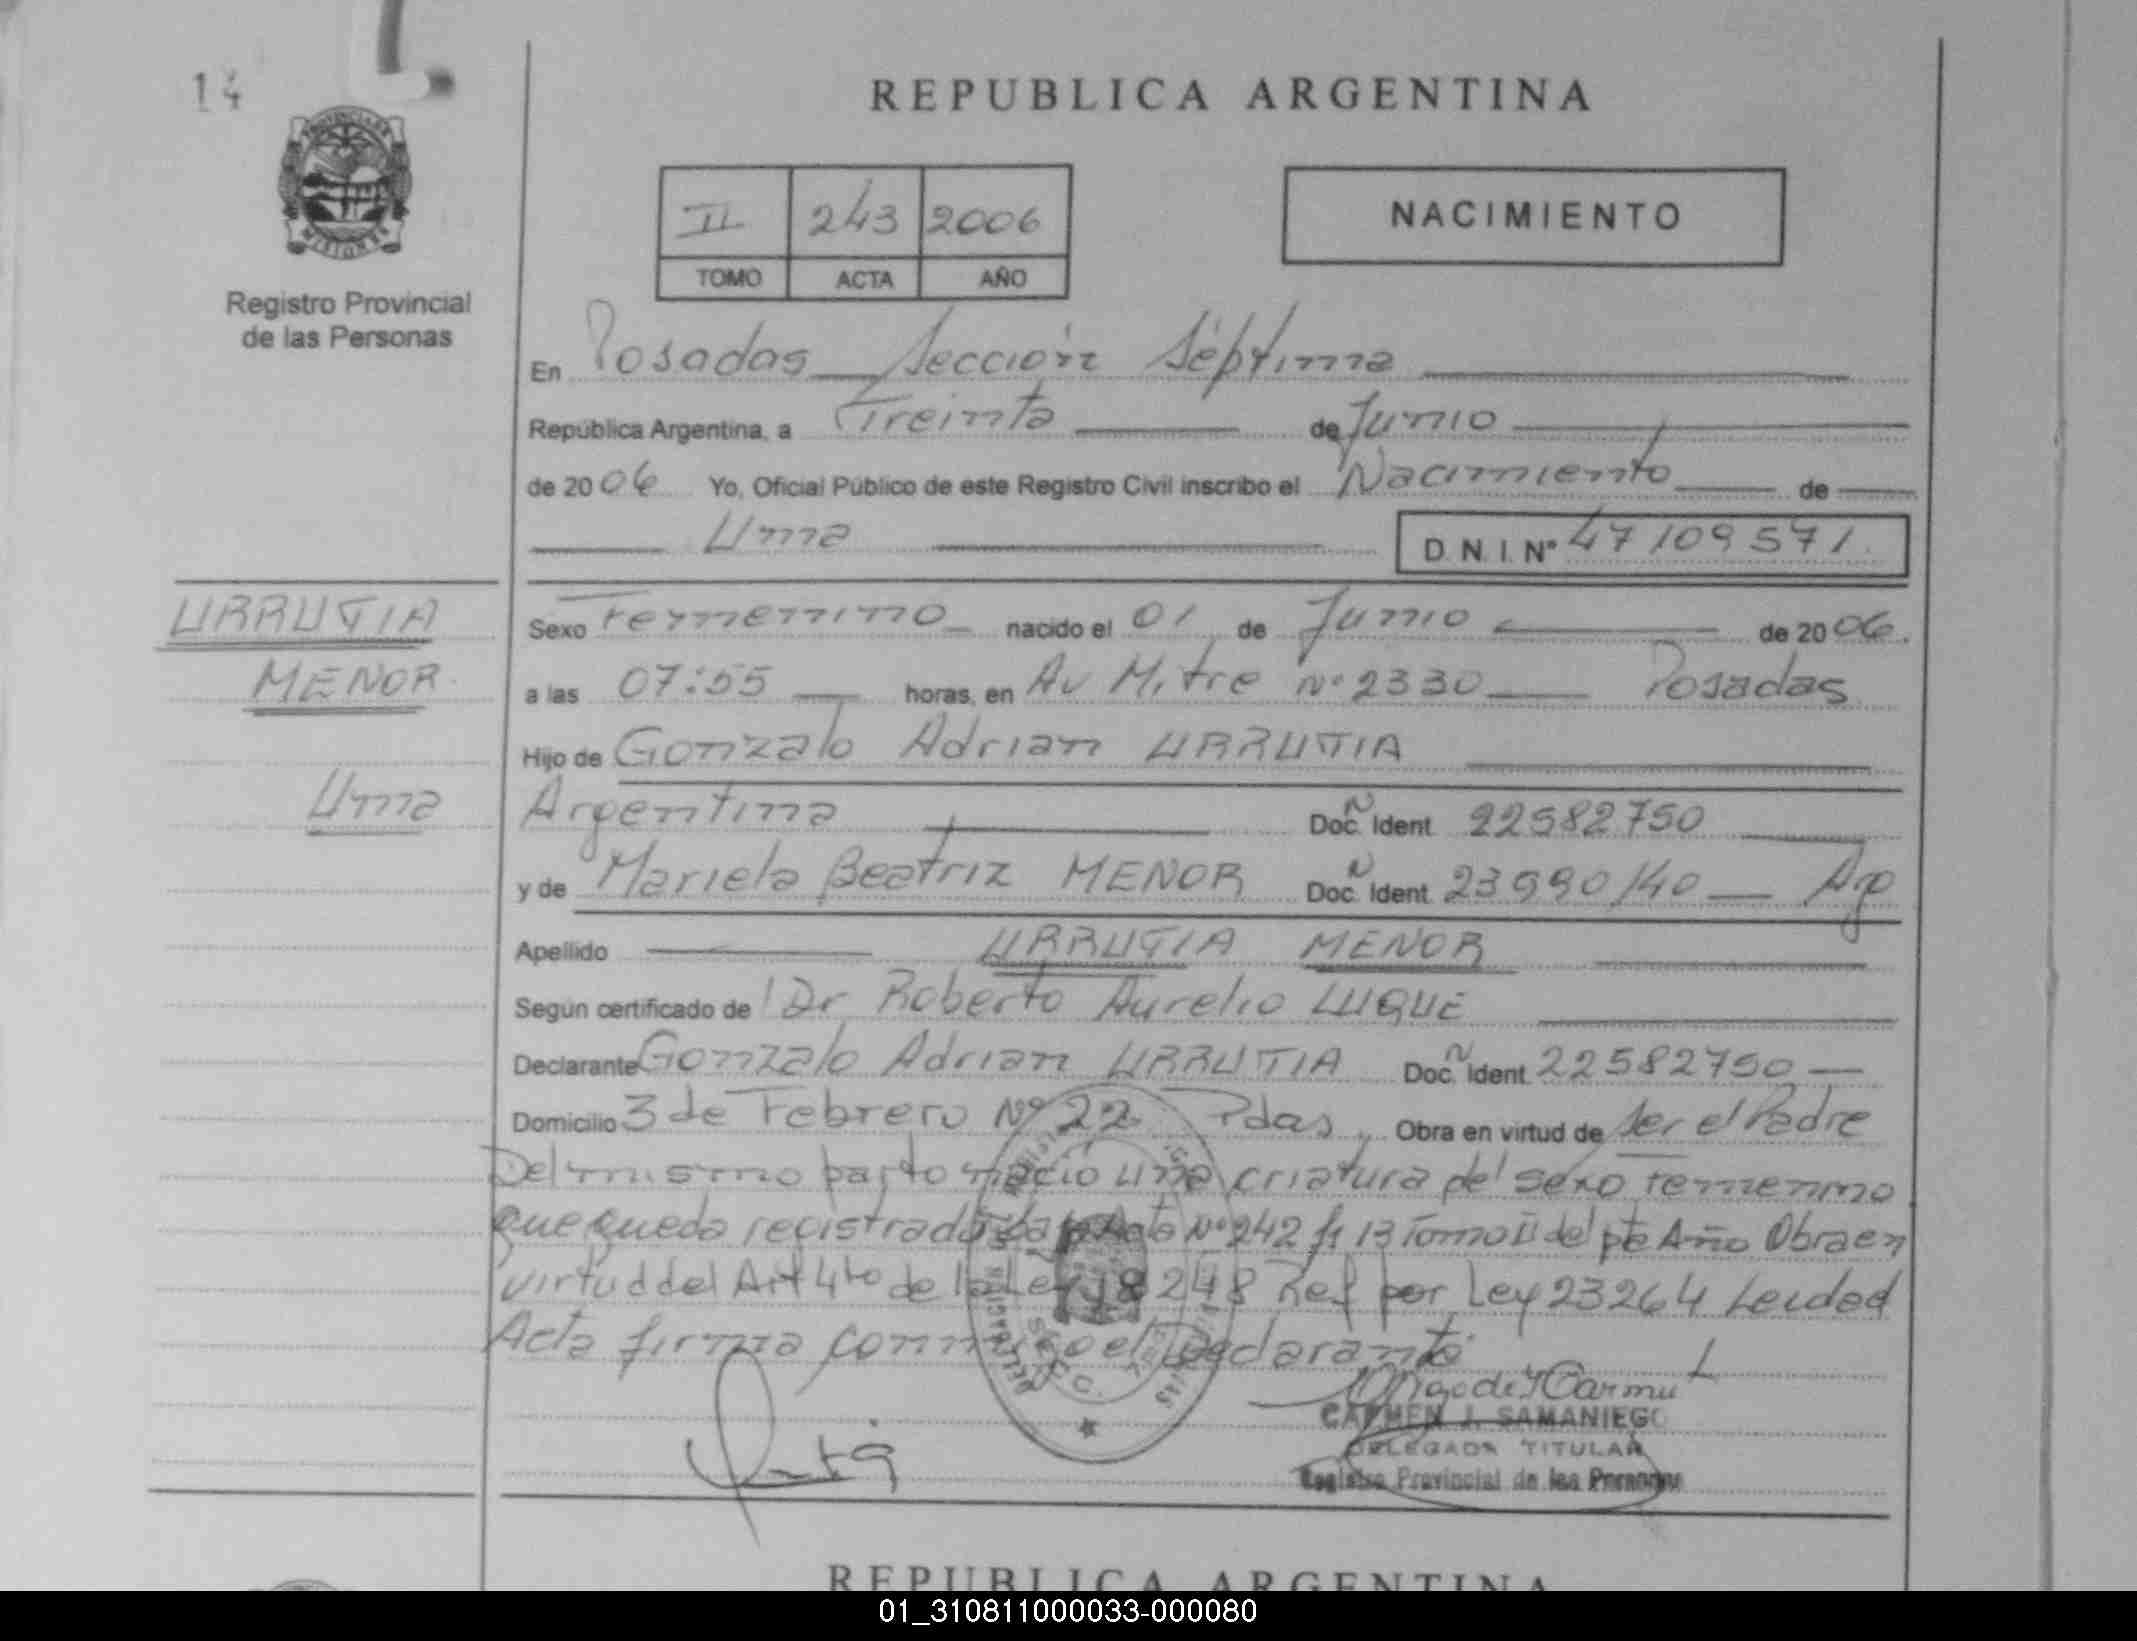 14
REPUBLICA ARGENTINA
PROVINCIA DE
MISIONES
Registro Provincial
de las Personas
II 243 2006
TOMO ACTA AÑO
NACIMIENTO
En Posadas Sección Séptima
República Argentina, a Treinta de Junio
de 2006 Yo, Oficial Público de este Registro Civil inscribo el Nacimiento de
Uma D. N. I. Nº 47109571.
URRUTIA
MENOR
Uma
Sexo Femenino nacido el 01 de Junio de 2006.
a las 07:55 horas, en Av Mitre Nº 2330 Posadas
Hijo de Gonzalo Adrian URRUTIA
Argentina Doc. Ident 22582750
y de Mariela Beatriz MENOR Doc. Ident. 23990140 Arg
Apellido URRUTIA MENOR
Según certificado de Dr Roberto Aurelio LUQUE
Declarante Gonzalo Adrian URRUTIA Doc. Ident. 22582750
Domicilio 3 de Febrero Nº 22 Pdas, Obra en virtud de ser el Padre
Del mismo parto nació una criatura del sexo femenino
que queda registrada Acta Nº 242 fº 13 Tomo II del pte Año Obra en
virtud del Art 4to de la Ley 18248 Ref por Ley 23264 Leida el
Acta firma conmigo el Declarante
CARMEN J. SAMANIEGO
DELEGADA TITULAR
Registro Provincial de las Personas
REPUBLICA ARGENTINA
01_310811000033-000080